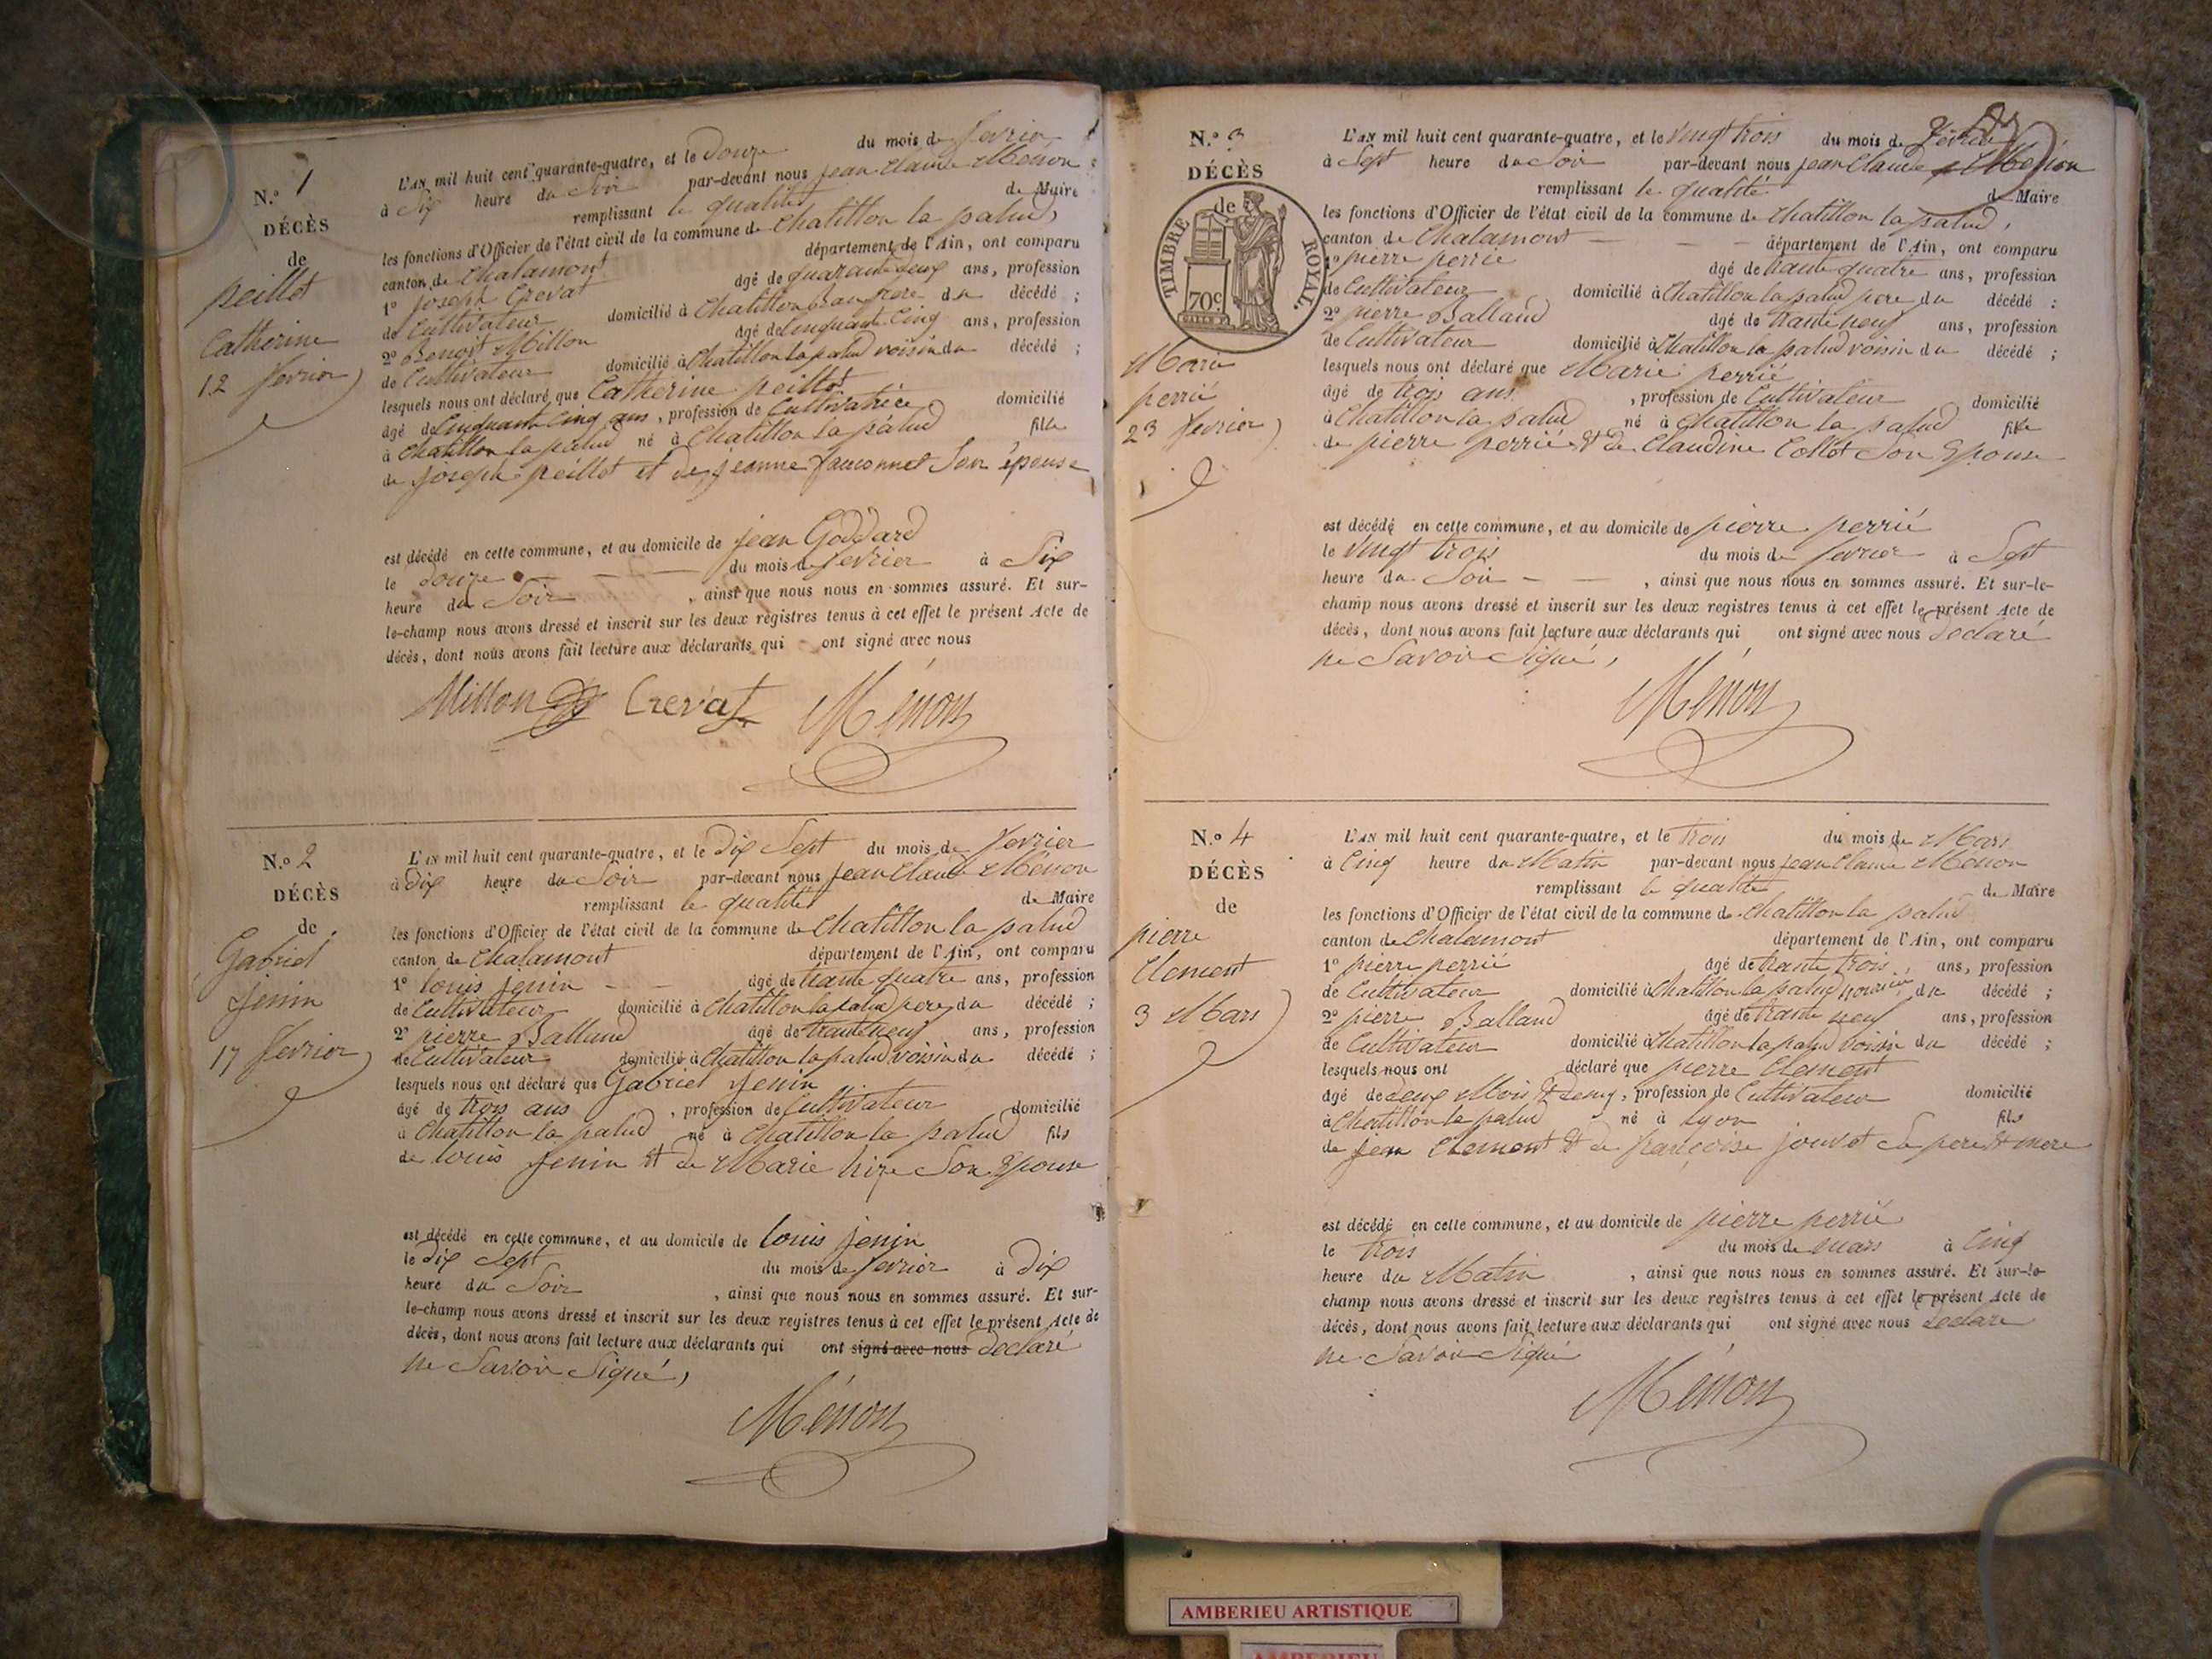 N.º 1
DÉCÈS
de
peillot
Catherine
12 fevrier
L'AN mil huit cent quarante-quatre, et le Douze du mois de fevrier
à Six heure du Soir par-devant nous jean Claude Ménon
remplissant le qualité de Maire
les fonctions d'Officier de l'état civil de la commune de Chatillon la palud,
canton de Chalamont département de l'Ain, ont comparu
1º joseph Crevat âgé de quarante deux ans, profession
de Cultivateur domicilié à Chatillon beau frere du décédé ;
2º Benoit Millon âgé de Cinquante Cinq ans, profession
de Cultivateur domicilié à Chatillon la palud voisin du décédé ;
lesquels nous ont déclaré que Catherine peillot
âgé de Cinquante Cinq ans, profession de Cultivatrice domicilié
à Chatillon la palud né à Chatillon la palud fille
de joseph peillot et de jeanne fauconnet Son épouse
est décédé en cette commune, et au domicile de jean Goddard
le Douze du mois de fevrier à Six
heure du Soir, ainsi que nous nous en sommes assuré. Et sur-
le-champ nous avons dressé et inscrit sur les deux registres tenus à cet effet le présent Acte de
décès, dont nous avons fait lecture aux déclarants qui ont signé avec nous
Millon Crevat Ménon
N.º 2
DÉCÈS
de
Gabriel
jenin
17 fevrier
L'AN mil huit cent quarante-quatre, et le Dix Sept du mois de fevrier
à Dix heure du Soir par-devant nous jean Claude Ménon
remplissant le qualité de Maire
les fonctions d'Officier de l'état civil de la commune de Chatillon la palud
canton de Chalamont département de l'Ain, ont comparu
1º louis jenin âgé de trante quatre ans, profession
de Cultivateur domicilié à Chatillon la palud pere du décédé ;
2º pierre Balland âgé de trante neuf ans, profession
de Cultivateur domicilié à Chatillon la palud voisin du décédé ;
lesquels nous ont déclaré que Gabriel jenin
âgé de trois ans, profession de Cultivateur domicilié
à Chatillon la palud né à Chatillon la palud fils
de louis jenin et de Marie Son Epouse
est décédé en cette commune, et au domicile de louis jenin
le Dix Sept du mois de fevrier à Dix
heure du Soir, ainsi que nous nous en sommes assuré. Et sur-
le-champ nous avons dressé et inscrit sur les deux registres tenus à cet effet le présent Acte de
décès, dont nous avons fait lecture aux déclarants qui ont signé avec nous Declaré
ne Savoir Signé,
Ménon
N.º 3
DÉCÈS
de
TIMBRE ROYAL.
70c
Marie
perrié
23 fevrier
L'AN mil huit cent quarante-quatre, et le Vingt trois du mois de Fevrier
à Sept heure du Soir par-devant nous jean Claude Ménon
remplissant le qualité de Maire
les fonctions d'Officier de l'état civil de la commune de Chatillon la palud,
canton de Chalamont département de l'Ain, ont comparu
1º pierre perrié âgé de trante quatre ans, profession
de Cultivateur domicilié à Chatillon la palud pere du décédé ;
2º pierre Balland âgé de trante neuf ans, profession
de Cultivateur domicilié à Chatillon la palud voisin du décédé ;
lesquels nous ont déclaré que Marie perrié
âgé de trois ans, profession de Cultivateur domicilié
à Chatillon la palud né à Chatillon la palud fille
de pierre perrié et de Claudine Collot Son Epouse
est décédé en cette commune, et au domicile de pierre perrié
le Vingt trois du mois de fevrier à Sept
heure du Soir, ainsi que nous nous en sommes assuré. Et sur-le-
champ nous avons dressé et inscrit sur les deux registres tenus à cet effet le présent Acte de
décès, dont nous avons fait lecture aux déclarants qui ont signé avec nous Declaré
ne Savoir Signé,
Ménon
N.º 4
DÉCÈS
de
pierre
Clement
3 Mars
L'AN mil huit cent quarante-quatre, et le trois du mois de Mars
à Cinq heure du Matin par-devant nous jean Claude Ménon
remplissant le qualité de Maire
les fonctions d'Officier de l'état civil de la commune de Chatillon la palud
canton de Chalamont département de l'Ain, ont comparu
1º pierre perrié âgé de trante trois, ans, profession
de Cultivateur domicilié à Chatillon la palud du décédé ;
2º pierre Balland âgé de trante neuf ans, profession
de Cultivateur domicilié à Chatillon la palud voisin du décédé ;
lesquels nous ont déclaré que pierre Clement
âgé de deux Mois et demy, profession de Cultivateur domicilié
à Chatillon la palud né à Lyon fils
de jean Clement et de françoise jouvet Se pere et mere
est décédé en cette commune, et au domicile de pierre perrié
le trois du mois de mars à Cinq
heure du Matin, ainsi que nous nous en sommes assuré. Et sur-le-
champ nous avons dressé et inscrit sur les deux registres tenus à cet effet le présent Acte de
décès, dont nous avons fait lecture aux déclarants qui ont signé avec nous Declaré
ne Savoir Signé
Ménon
AMBERIEU ARTISTIQUE
AMBERIEU